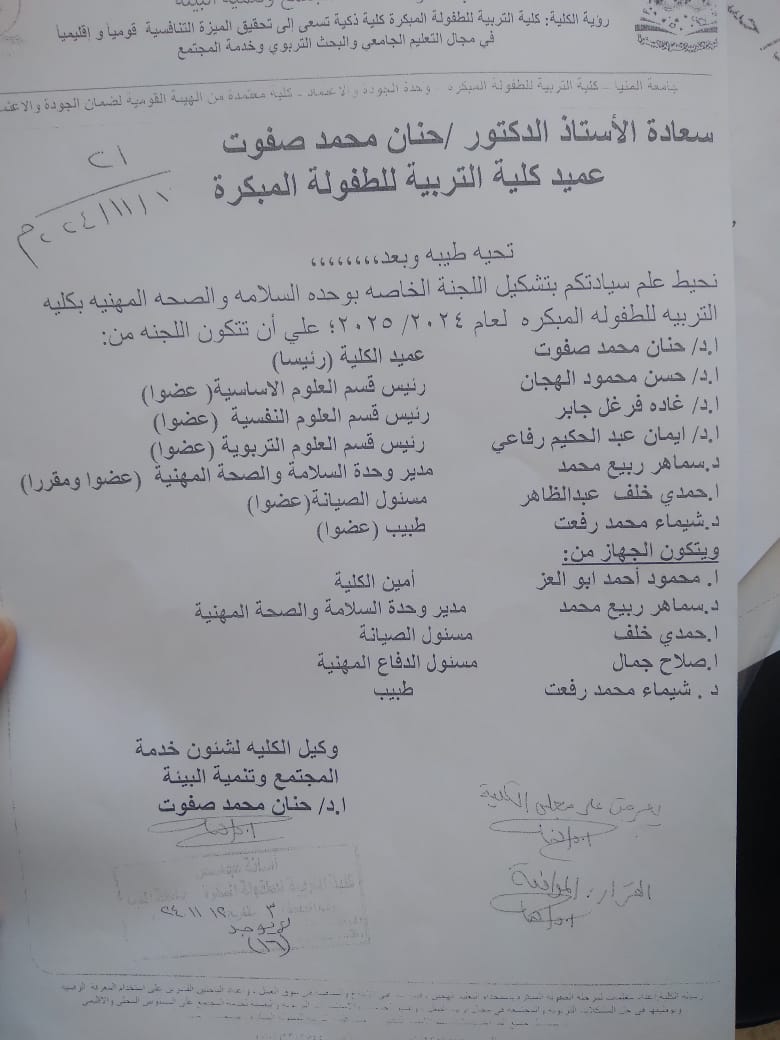 رؤية الكلية: كلية التربية للطفولة المبكرة كلية ذكية تسعى الى تحقيق الميزة التنافسية قومياً و إقليمياً
في مجال التعليم الجامعي والبحث التربوي وخدمة المجتمع
جامعة المنيا – كلية التربية للطفولة المبكره – وحدة الجودة والاعتماد – كلية معتمدة من الهيئة القومية لضمان الجودة والاعتماد
٢١
٢٠٢٤/١١/١م
سعادة الأستاذ الدكتور /حنان محمد صفوت
عميد كلية التربية للطفولة المبكرة
تحيه طيبه وبعد،،،،،،،،
نحيط علم سيادتكم بتشكيل اللجنة الخاصه بوحده السلامه والصحه المهنيه بكليه
التربيه للطفوله المبكره لعام ٢٠٢٤/ ٢٠٢٥؛ علي أن تتكون اللجنه من:
ا.د/ حنان محمد صفوت عميد الكلية (رئيسا)
ا.د/ حسن محمود الهجان رئيس قسم العلوم الاساسية( عضوا)
ا.د/ غاده فرغل جابر رئيس قسم العلوم النفسية (عضوا)
ا.د/ ايمان عبد الحكيم رفاعي رئيس قسم العلوم التربوية (عضوا)
د.سماهر ربيع محمد مدير وحدة السلامة والصحة المهنية (عضوا ومقررا)
ا.حمدي خلف عبدالظاهر مسئول الصيانة(عضوا)
د.شيماء محمد رفعت طبيب (عضوا)
ويتكون الجهاز من:
ا. محمود أحمد ابو العز أمين الكلية
د.سماهر ربيع محمد مدير وحدة السلامة والصحة المهنية
ا.حمدي خلف مسئول الصيانة
ا.صلاح جمال مسئول الدفاع المهنية
د . شيماء محمد رفعت طبيب
وكيل الكليه لشئون خدمة
المجتمع وتنمية البيئة
ا.د/ حنان محمد صفوت
يعرض على مجلس الكلية
القرار: الموافقة
أمانة مجلس
كلية التربية للطفولة المبكرة
٣
٢٤ ١١ ١٢
(١٦)